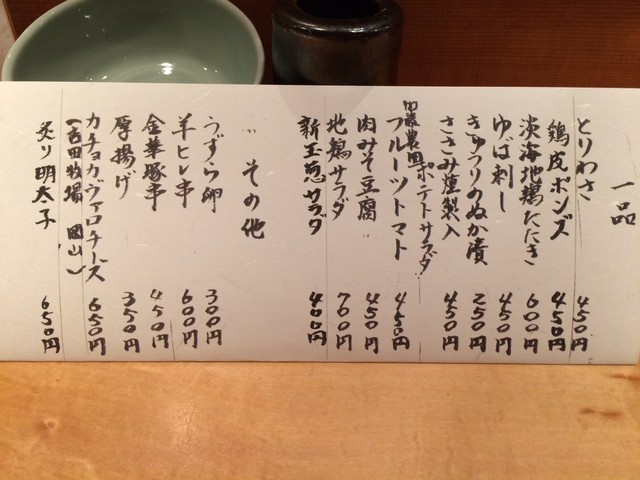 一品
とりわさ 450円
鶏皮ポンズ 450円
淡海地鶏たたき 600円
ゆば刺し 450円
きゅうりのぬか漬 250円
ささみ燻製入ポテトサラダ 450円
農園フルーツトマト 450円
肉みそ豆腐 450円
地鶏サラダ 700円
新玉葱サラダ 400円
〃 その他
うずら卵 300円
羊ヒレ串 600円
金華豚串 450円
厚揚げ 350円
カチョカヴァロチーズ 650円
(吉田牧場 岡山)
炙り明太子 650円